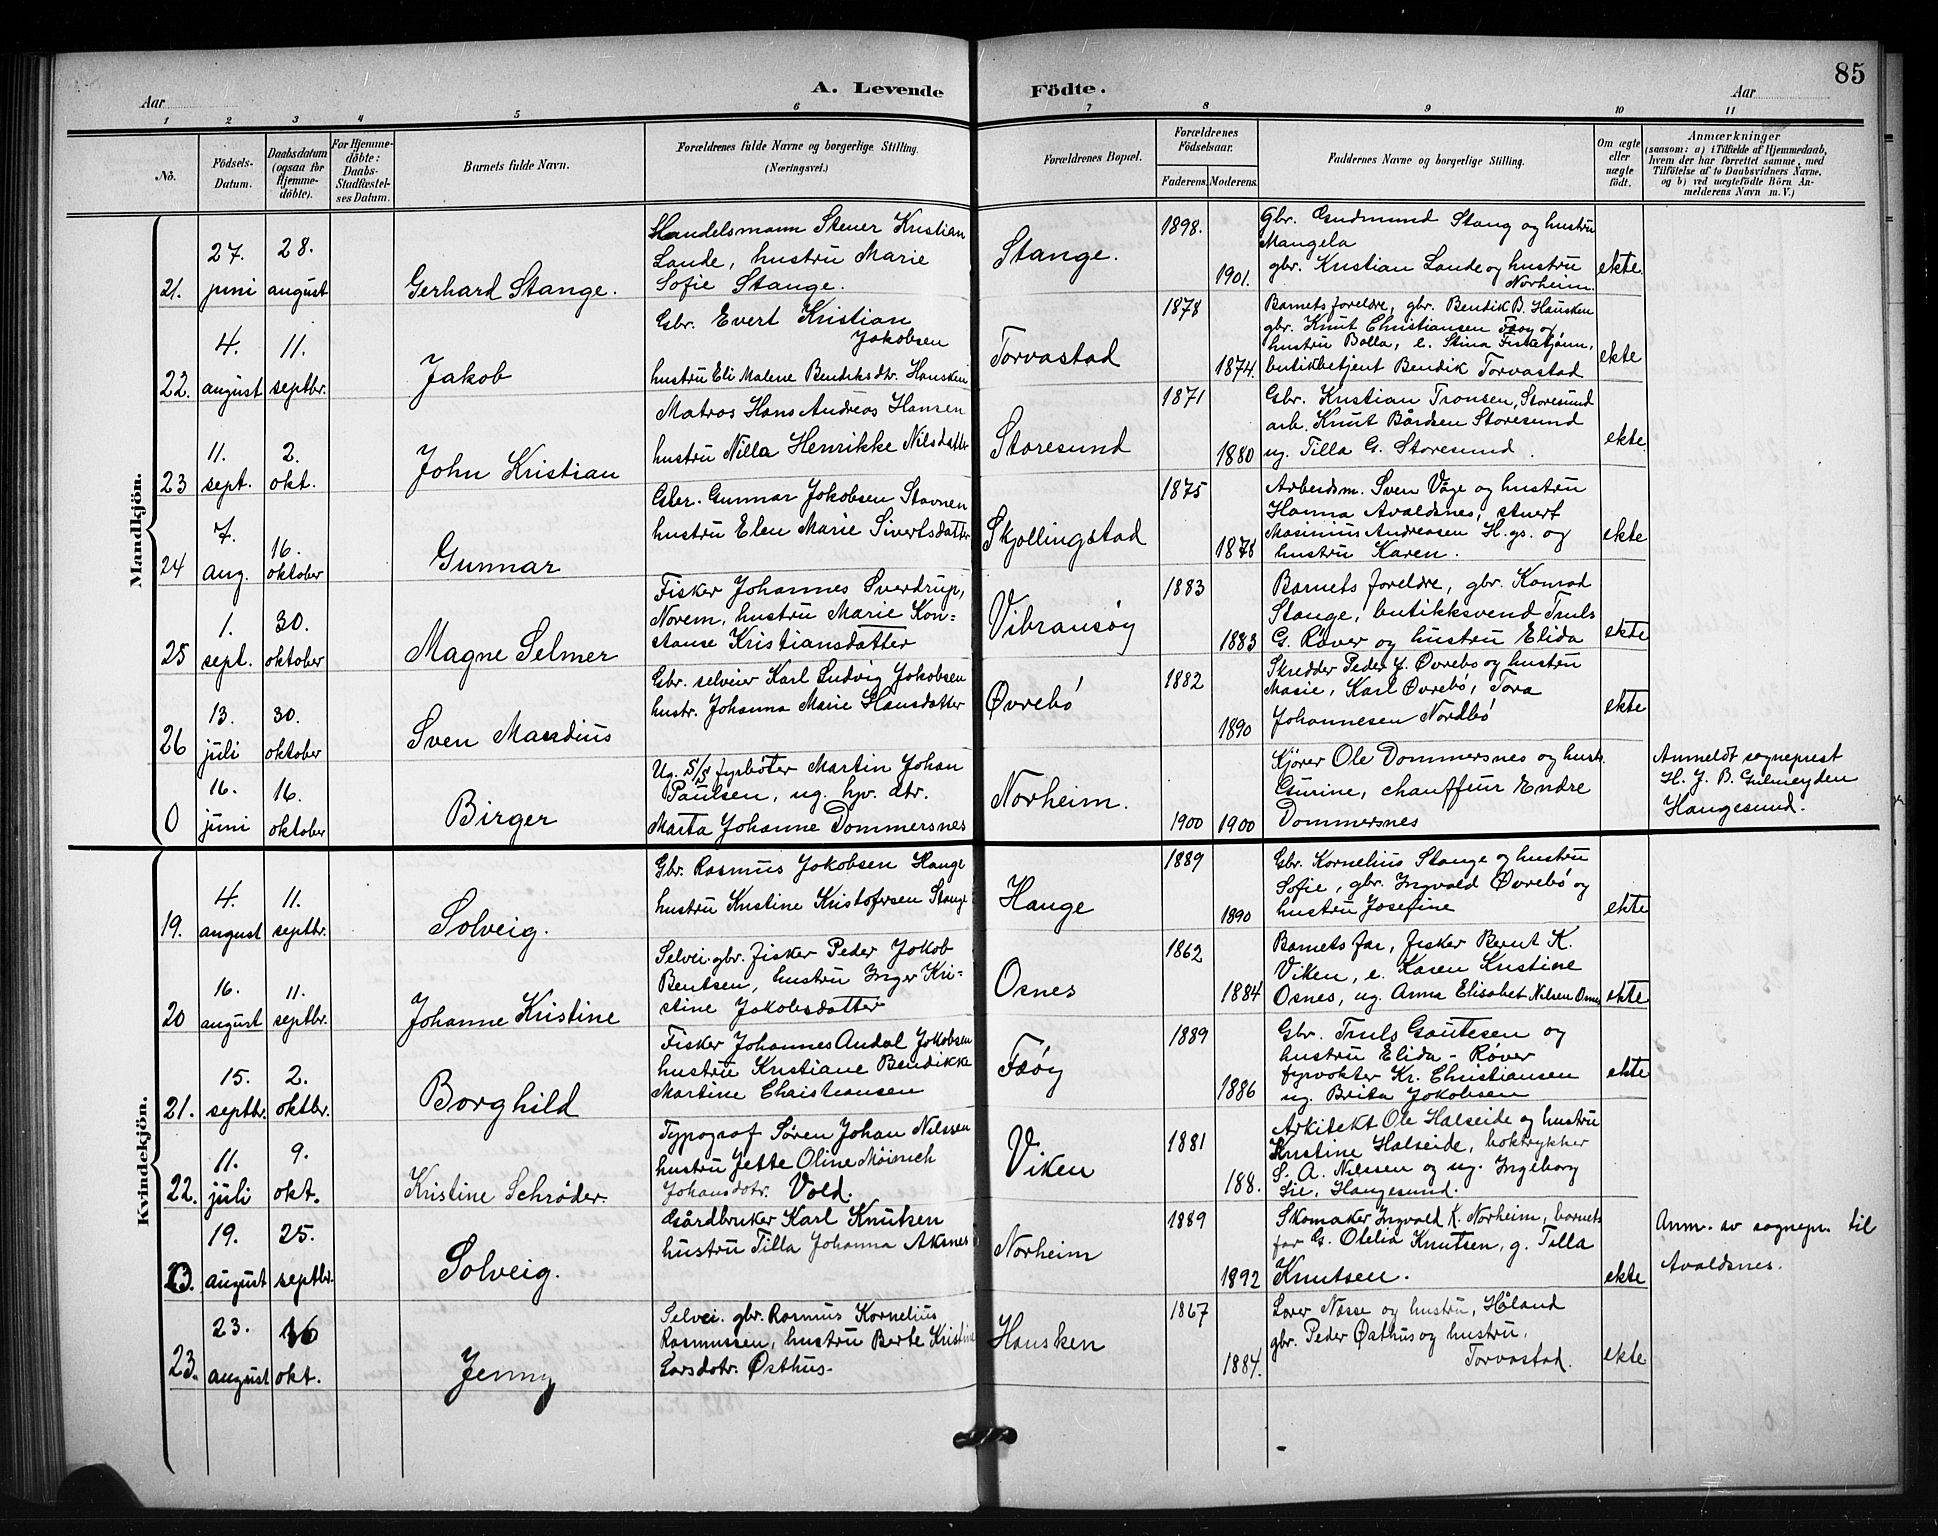 85
Aar
A. Levende Födte.
Aar
1 2 3 4 5 6 7 8 9 10 11
No.
Födsels-Datum.
Daabsdatum (ogsaa for Hjemmedöbte).
For Hjemmedöbte: Daabs-Stadfæstelses Datum.
Barnets fulde Navn.
Forældrenes fulde Navne og borgerlige Stilling.
(Næringsvei.)
Forældrenes Bopæl.
Forældrenes Födselsaar.
Faderens. Moderens.
Faddernes Navne og borgerlige Stilling.
Om ægte eller uægte födt.
Anmærkninger
(saasom: a) i Tilfælde af Hjemmedaab, hvem der har forrettet samme, med Tilföielse af to Daabsvidners Navne, og b) ved uægtefödte Börn Anmelderens Navn m. V.)
Mandkjön.
21. 27. juni 28. august Gerhard Stange.
Handelsmann Stener Kristian
Lande, hustru Marie
Sofie Stange.
Stange. 1898. 1901.
Gbr. Gudmund Stang og hustru
Mangela
gbr. Kristian Lande og hustru
Norheim.
ekte
22. 4. august 11. septbr. Jakob
Gbr. Evert Kristian
Jakobsen
hustru Eli Malene Bendiksdtr. Hausken
Torvastad 1878 1874.
Barnets foreldre, gbr. Bendik B. Hausken
gbr. Knut Christiansen Feøy og
hustru Bolla, e. Stina Fisketjønn,
butikbetjent Bendik Torvastad
ekte
23 11. sept. 2. okt. John Kristian
Matros Hans Andreas Hansen
hustru Nilla Henrikke Nilsdatter
Storesund 1871 1880
Gbr. Kristian Tronsen, Storesund
arb. Knut Bårdsen Storesund
ug. Tilla G. Storesund.
ekte
24 7. aug. 16. oktober Gunnar
Gbr. Gunnar Jakobsen Stavnen
hustru Elen Marie Sivertsdatter
Skjollingstad 1875 1878
Arbeidsm. Sven Våge og hustru
Hanna Avaldsnes, stuert
Masinius Andreasen H.gs. og
hustru Karen.
ekte
25 1. sept. 30. oktober Magne Selmer
Fisker Johannes Sverdrup,
Norem, hustru Marie Kon-
stanse Kristiansdatter
Vibransøy 1883 1883
Barnets foreldre, gbr. Konrad
Stange, butikksvend Truls
G. Røver og hustru Elida
ekte
26 13. juli 30. oktober Sven Mandius
Gbr. selveier Karl Ludvig Jakobsen
hustr. Johanna Marie Hansdatter
Øvrebø 1882 1890
Skredder Peder J. Øvrebø og hustru
Masie, Karl Øvrebø, Tora
Johannesen Nordbø
ekte
0 16. juni 16. oktober Birger
Ug. S/S fyrbøter Martin Johan
Paulsen, ug. hjv. dtr.
Marta Johanne Dommersnes
Norheim. 1900 1900
Kjører Ole Dommersnes og hust.
Gurine, chauffeur Endre
Dommersnes
Anmeldt sogneprest
H. J. B. Gulmeyden
Haugesund.
Kvindekjön.
19. 4. august 11. septbr. Solveig.
Gbr. Rasmus Jakobsen Hauge
hustru Kristine Kristofersen Stange
Hauge 1889 1890
Gbr. Kornelius Stange og hustru
Sofie, gbr. Ingvald Øvrebø og
hustru Josefine
ekte
20 16. august 11. septbr. Johanne Kristine
Selvei. gbr. fisker Peder Jakob
Bentsen, hustru Inger Kri-
stine Jakobsdatter
Osnes 1862 1884
Barnets far, fisker Bernt K.
Viken, e. Karen Kristine
Osnes, ug. Anna Elisabet Nilsen Osnes
ekte
21. 15. septbr. 2. oktbr. Borghild
Fisker Johannes Andal Jakobsen
hustru Kristiane Bendikke
Martine Christiansen
Feøy 1889 1886
Gbr. Truls Gautesen og
hustru Elida - Røver
fyrvokter Kr. Christiansen
ug. Brita Jakobsen
ekte
22. 11. juli 9. okt. Kristine Schrøder.
Typograf Søren Johan Nilssen
hustru Jette Oline Møinich
Johansdotr. Vold.
Viken 1881 188.
Arkitekt Ole Halseide og hustru
Kristine Halseide, boktrykker
S. A. Nilssen og ug. Ingeborg
Lie, Haugesund.
0. 19. august 25. septbr. Solveig.
Gårdbruker Karl Knutsen
hustru Tilla Johanna Aksnes
Norheim 1889 1892
Skomaker Ingvald K. Norheim, barnets
far G. Otelia Knutsen, g. Tilla
Knutsen.
ekte
Anm. sv sognepr. til
Avaldsnes.
23. 23. august 16 okt. Jenny
Selvei. gbr. Rasmus Kornelius
Rasmussen, hustru Berte Kristine
Larsdotr. Østhus-
Hausken 1867 1884.
Lærer Nesse og hustru, Håland
gbr. Peder Østhus og hustru,
Torvastad.
ekte